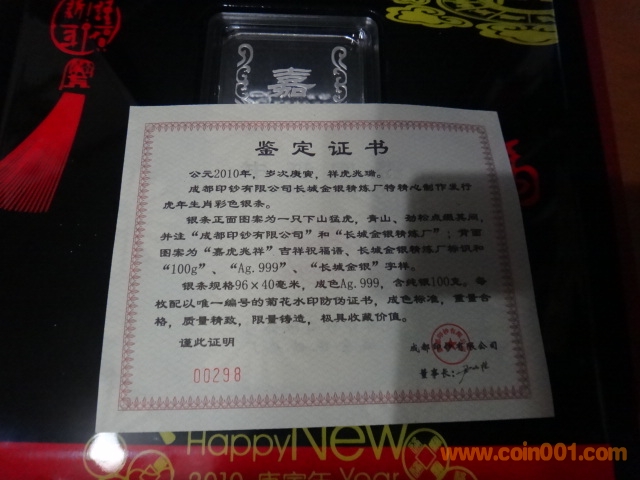 嘉
鉴定证书
公元2010年，岁次庚寅，祥虎兆瑞。
成都印钞有限公司长城金银精炼厂特精心制作发行
虎年生肖彩色银条。
银条正面图案为一只下山猛虎，青山、劲松点缀其间，
并注“成都印钞有限公司”和“长城金银精炼厂”；背面
图案为“嘉虎兆祥”吉祥祝福语、长城金银精炼厂标识和
“100g”、“Ag.999”、“长城金银”字样。
银条规格96×40毫米，成色Ag.999，含纯银100克。每
枚配以唯一编号的菊花水印防伪证书，成色标准，重量合
格，质量精致，限量铸造，极具收藏价值。
谨此证明
成都印钞有限公司
董事长：
00298
Happy New
2010 庚寅年 Year
www.coin001.com